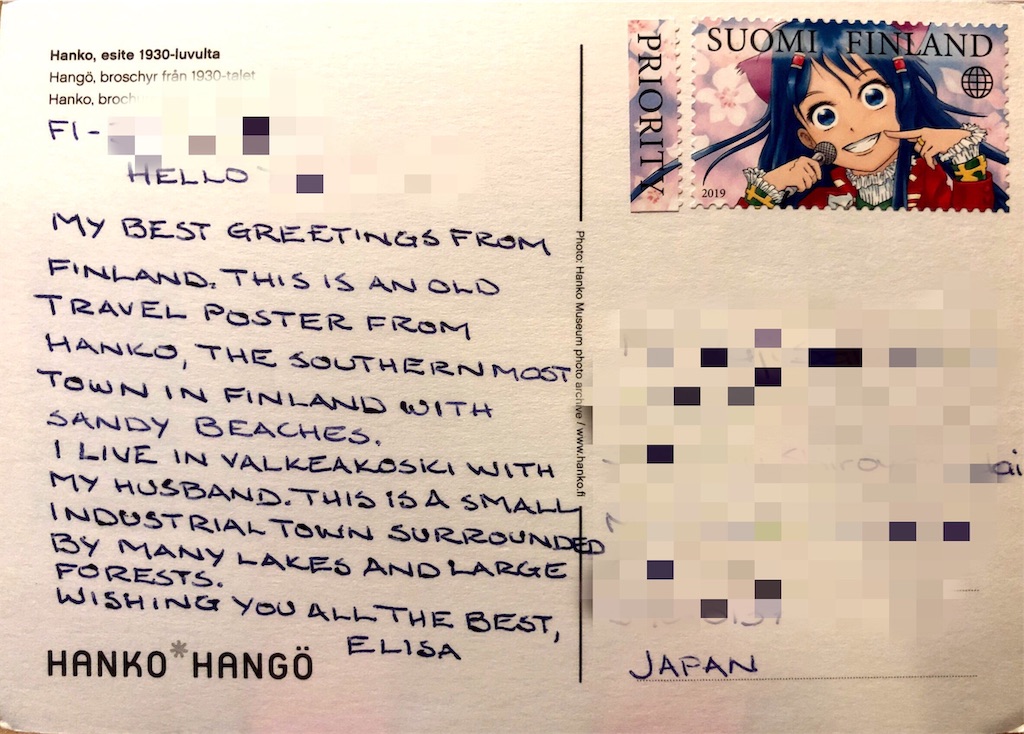 Hanko, esite 1930-luvulta
Hangö, broschyr från 1930-talet
Hanko,
FI-
HELLO
MY BEST GREETINGS FROM
FINLAND. THIS IS AN OLD
TRAVEL POSTER FROM
HANKO, THE SOUTHERNMOST
TOWN IN FINLAND WITH
SANDY BEACHES.
I LIVE IN VALKEAKOSKI WITH
MY HUSBAND. THIS IS A SMALL
INDUSTRIAL TOWN SURROUNDED
BY MANY LAKES AND LARGE
FORESTS.
WISHING YOU ALL THE BEST,
ELISA
HANKO*HANGÖ
Photo: Hanko Museum photo archive / www.hanko.fi
PRIORITY
SUOMI FINLAND
2019
JAPAN